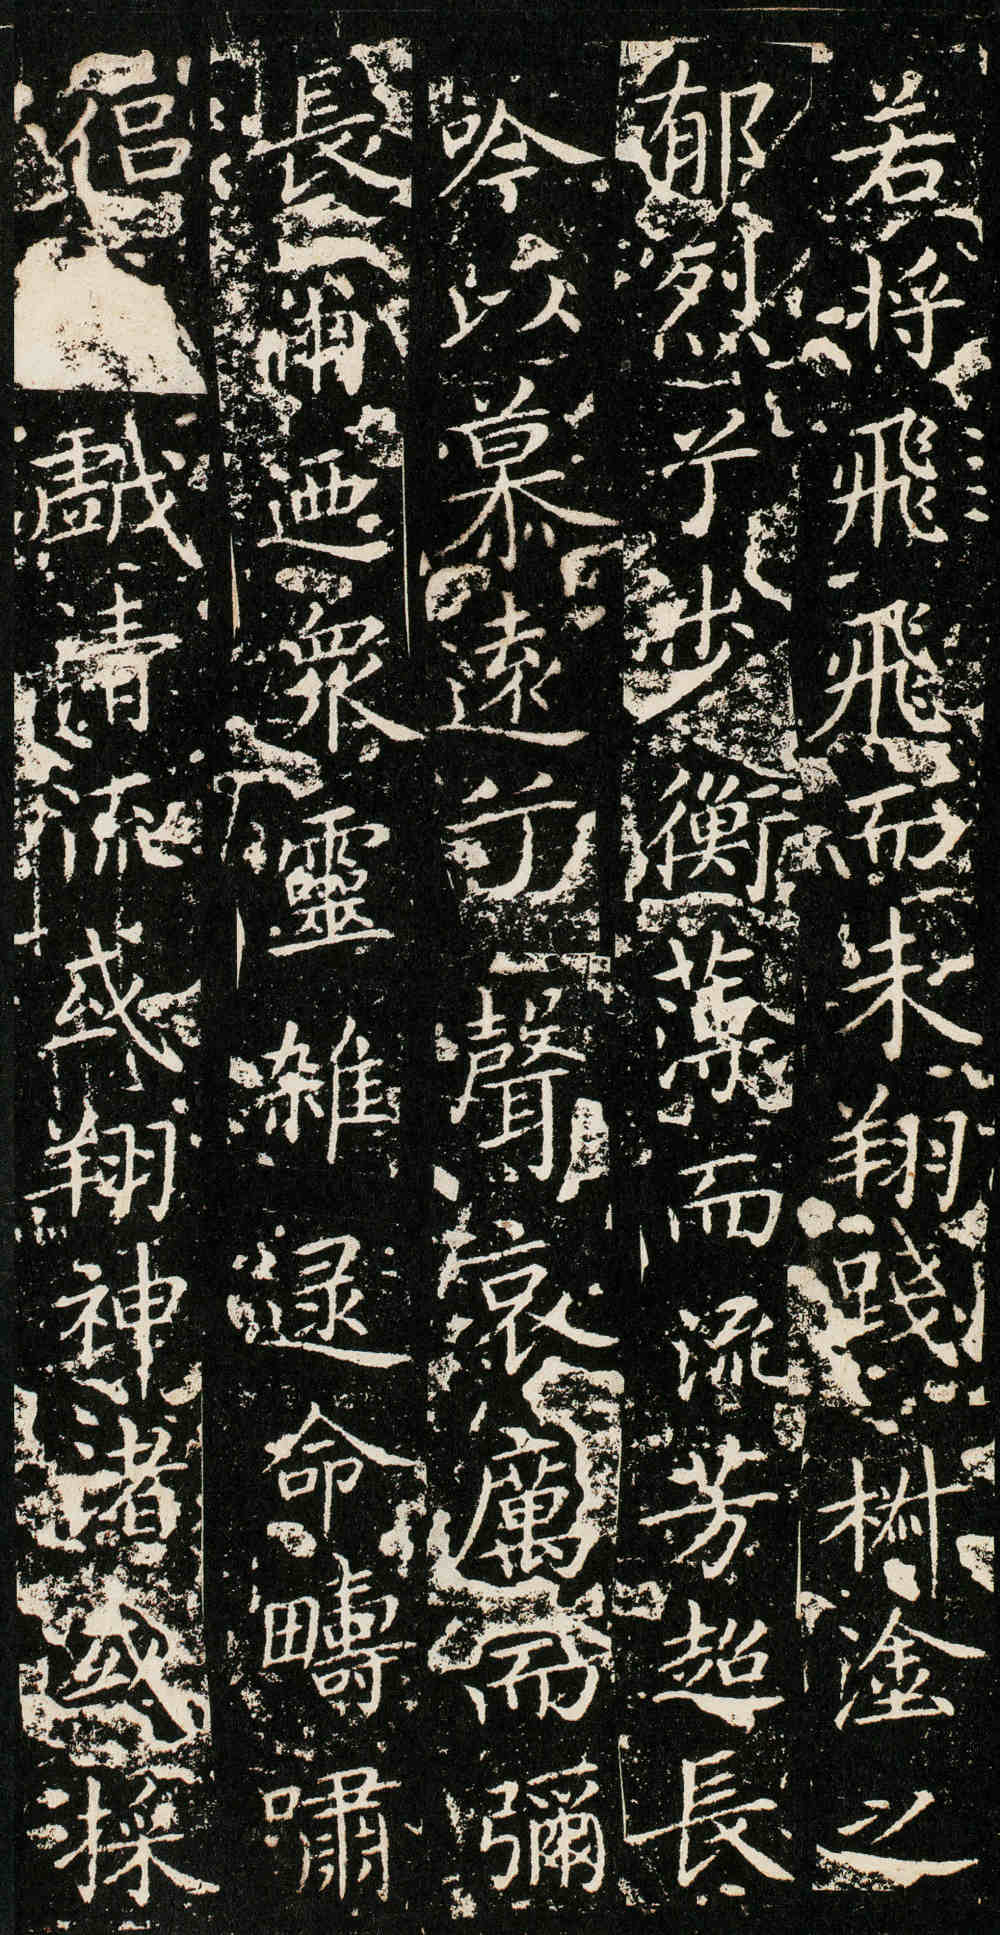 若将飛飛而未翔踐椒塗之
郁烈兮步衡薄而流芳超長
吟以慕遠兮聲哀厲而彌
長爾迺衆靈雜逯命疇嘯
侶戲清流或翔神渚或採